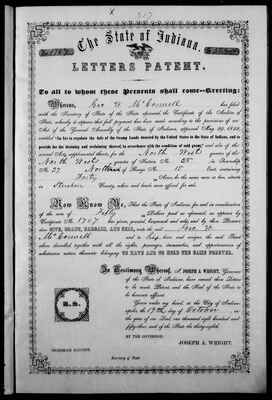 The State of Indiana,
LETTERS PATENT.
To all to whom these Presents shall come—Greeting:
Whereas, Geo W McConnell has filed
with the Secretary of State of the State aforesaid the Certificate of the Auditor of
State, whereby it appears that full payment has been made according to the provisions of an
Act of the General Assembly of the State of Indiana, approved May 29, 1852,
entitled "An Act to regulate the Sale of the Swamp Lands donated by the United States to the State of Indiana, and to
provide for the draining and reclaiming thereof in accordance with the condition of said grant," and also of the
several Acts supplemental thereto, for the North West quarter of the
North West quarter of Section No. 25 in Township
No. 37 North of Range No. 15 East containing
Forty Acres, be the same more or less, situate
in Steuben County, when and made area offered for sale.
Now Know Ye, That the State of Indiana, for and in consideration
of the sum of Fifty Dollars paid as aforesaid, as appears by
Certificate No. 1767 has given, granted, bargained and sold, and by these Presents
does GIVE, GRANT, BARGAIN, AND SELL, unto the said Geo. W.
McConnell and to his heirs and assigns the said Tract
above described together with all the rights, passages, immunities, and appurtenances of
whatsoever nature thereunto belonging TO HAVE AND TO HOLD THE SAME FOREVER.
In Testimony Whereof, I, JOSEPH A. WRIGHT, Governor
of the State of Indiana, have caused these Letters
to be made Patent, and the Seal of the State to
be hereunto affixed.
Given under my hand, at the City of Indianapolis,
the 19th day of October in
the year of our Lord, one thousand eight hundred and
fifty-three and of the State the thirty-eighth.
L.S.
By the Governor:
JOSEPH A. WRIGHT.
Secretary of State